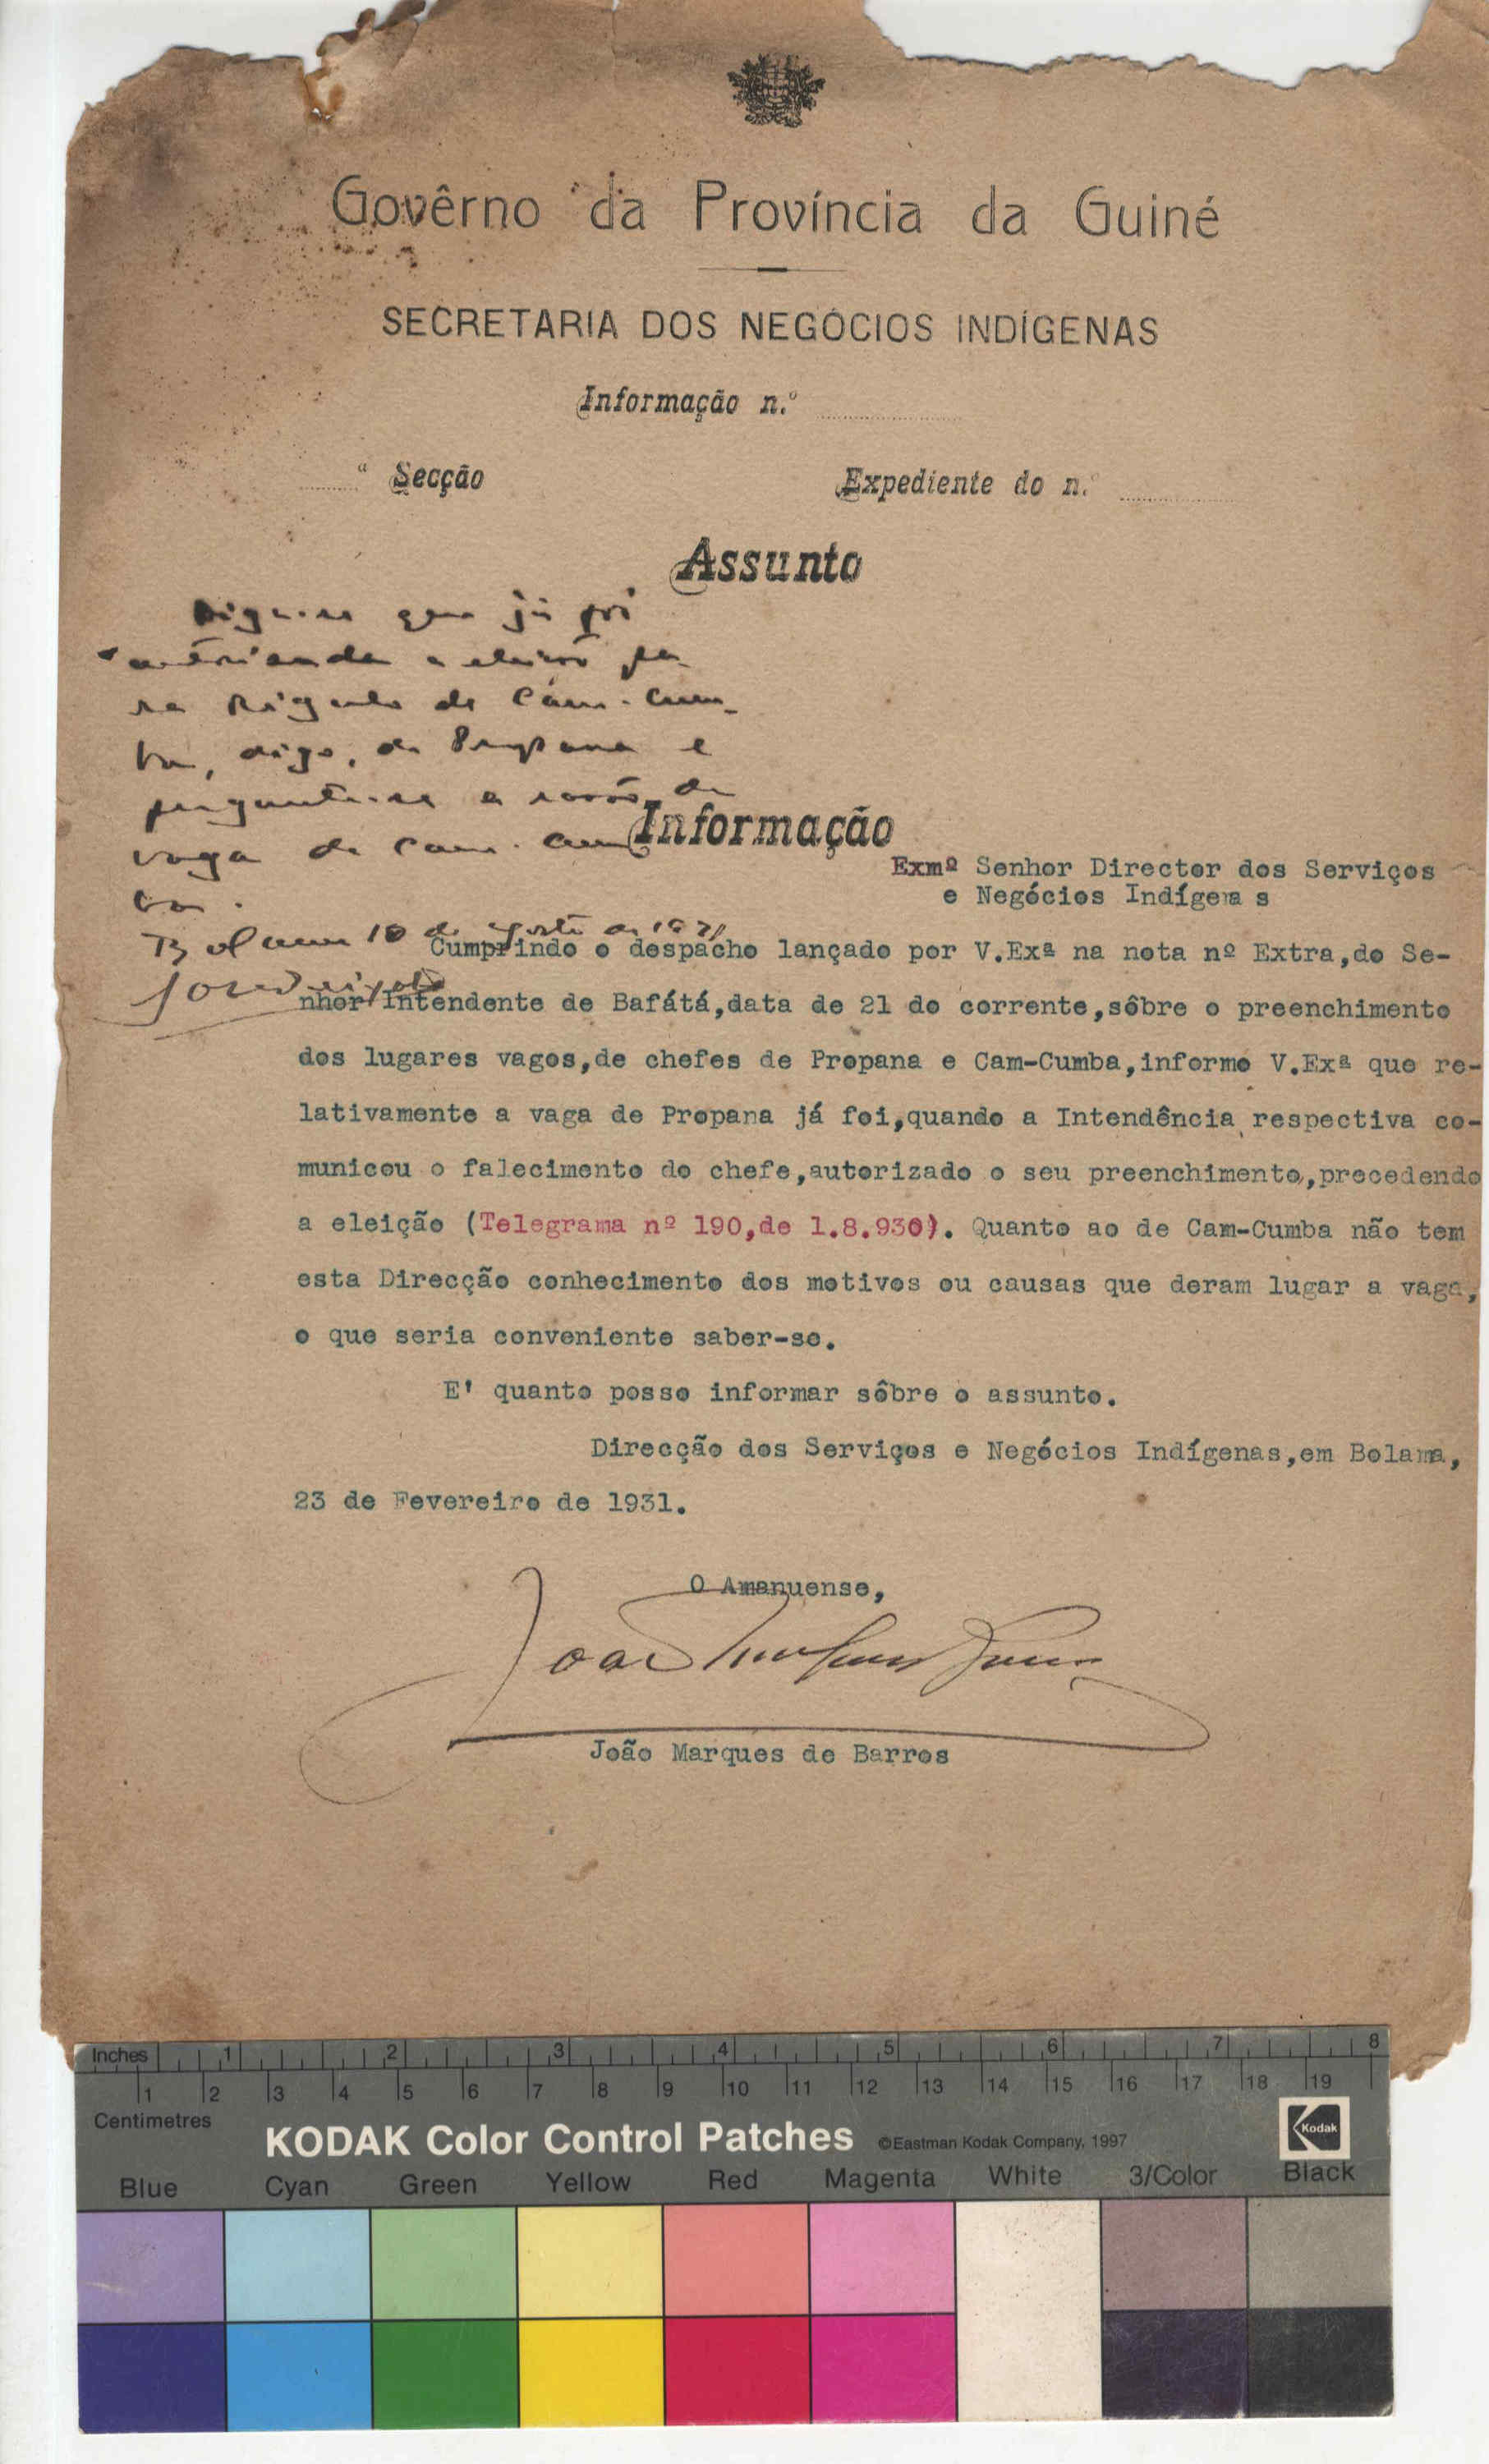 Govêrno da Província da Guiné
SECRETARIA DOS NEGÓCIOS INDÍGENAS
Informação n.º
ª Secção
Expediente do n.º
Assunto
Diga-se que já foi
autorisada a eleição pa-
ra Régulo de Cam-Cum-
ba, digo, de Propana e
pergunte-se a razão da
vaga de Cam-Cum
ba.
Bolama 10 de agosto de 1931
Informação
Exmº Senhor Director dos Serviços
e Negócios Indígena s
Cumprindo o despacho lançado por V.Exª na nota nº Extra,do Se-
nhor Intendente de Bafátá,data de 21 do corrente,sôbre o preenchimento
dos lugares vagos,de chefes de Propana e Cam-Cumba,informo V.Exª que re-
lativamente a vaga de Propana já foi,quando a Intendência respectiva co-
municou o falecimento do chefe,autorizado o seu preenchimento,precedendo
a eleição (Telegrama nº 190,de 1.8.930). Quanto ao de Cam-Cumba não tem
esta Direcção conhecimento dos motivos ou causas que deram lugar a vaga,
o que seria conveniente saber-se.
E' quanto posso informar sôbre o assunto.
Direcção dos Serviços e Negócios Indígenas,em Bolama,
23 de Fevereiro de 1931.
O Amanuense,
João Marques de Barros
Inches 1 2 3 4 5 6 7 8
1 2 3 4 5 6 7 8 9 10 11 12 13 14 15 16 17 18 19
Centimetres
KODAK Color Control Patches ©Eastman Kodak Company, 1997 Kodak
Blue Cyan Green Yellow Red Magenta White 3/Color Black